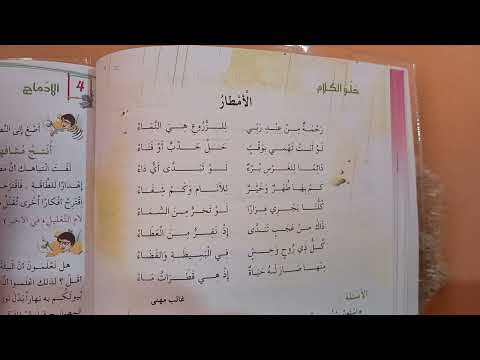 حلو الكلام
الْأَمْطَارُ
رَحْمَةٌ مِنْ عِنْدِ رَبِّي لِلزُّرُوعِ هِيَ النَّمَاءُ
لَوْ أَتَتْ تَهْمِي بِوَقْتٍ حَلَّ جَدْبٌ أَوْ فَنَاءُ
دَائِمًا لِلْغَرْسِ بُرْءٌ لَوْ تَبَدَّى أَيُّ دَاءُ
كَمْ بِهَا طُهْرٌ وَخَيْرٌ لِلْأَنَامِ وَكَمْ شِفَاءُ
كُلُّنَا يَجْرِي فِرَارًا لَوْ تَخِرُّ مِنَ السَّمَاءُ
ذَاكَ مِنْ عَجَبٍ تَبَدَّى إِذْ نَفِرُّ مِنَ الْعَطَاءُ
كُلُّ ذِي رُوحٍ وَحِسٍّ فِي الْبَسِيطَةِ وَالْفَضَاءُ
مِنْهَا صَارَ لَهُ حَيَاةٌ إِذْ هِيَ قَطَرَاتُ مَاءُ
غالب مهنى
الأسئلة
4 الإدماج
لَفَتَ انْتِبَاهَكَ أَنَّ
إِهْدَارًا لِلطَّاقَةِ
هل تعلمون أَنّ